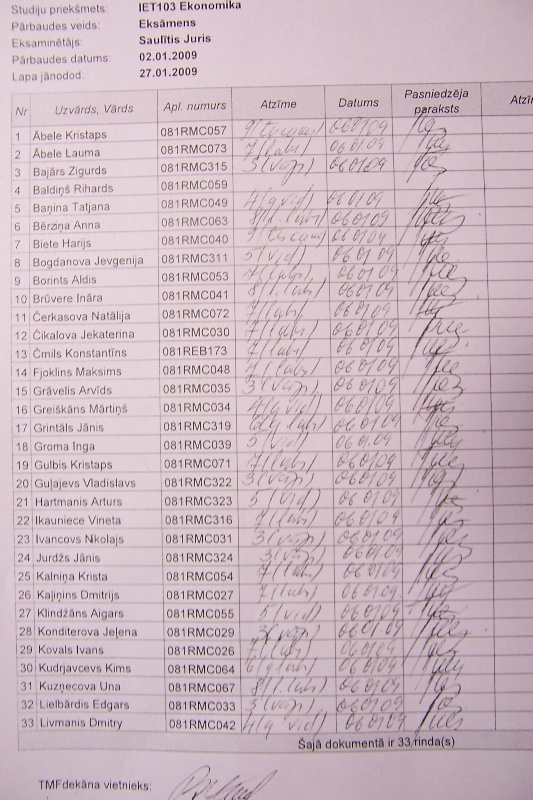 Studiju priekšmets: IET103 Ekonomika
Pārbaudes veids: Eksāmens
Eksaminētājs: Saulītis Juris
Pārbaudes datums: 02.01.2009
Lapa jānodod: 27.01.2009
Nr Uzvārds, Vārds Apl. numurs Atzīme Datums Pasniedzēja paraksts
1 Ābele Kristaps 081RMC057 060109
2 Ābele Lauma 081RMC073 7(labi) 060109
3 Bajārs Zigurds 081RMC315 3(vāji) 060109
4 Baldiņš Rihards 081RMC059
5 Baņina Tatjana 081RMC049 4(g.vid) 060109
6 Bērziņa Anna 081RMC063 8(l.labi) 060109
7 Biete Harijs 081RMC040 060109
8 Bogdanova Jevgenija 081RMC311 5(vid) 060109
9 Borints Aldis 081RMC053 7(labi) 060109
10 Brūvere Ināra 081RMC041 8(l.labi) 060109
11 Čerkasova Natālija 081RMC072 7(labi) 060109
12 Čikalova Jekaterina 081RMC030 7(labi) 060109
13 Čmils Konstantīns 081REB173 7(labi) 060109
14 Fjoklins Maksims 081RMC048 7(labi) 060109
15 Grāvelis Arvīds 081RMC035 3(vāji) 060109
16 Greiškāns Mārtiņš 081RMC034 4(g.vid) 060109
17 Grintāls Jānis 081RMC319 060109
18 Groma Inga 081RMC039 5(vid) 06.01.09
19 Gulbis Kristaps 081RMC071 7(labi) 060109
20 Guļajevs Vladislavs 081RMC322 3(vāji) 060109
21 Hartmanis Arturs 081RMC323 5(vid) 060109
22 Ikauniece Vineta 081RMC316 7(labi) 060109
23 Ivancovs Nkolajs 081RMC031 3(vāji) 060109
24 Jurdžs Jānis 081RMC324 3(vāji) 060109
25 Kalniņa Krista 081RMC054 7(labi) 060109
26 Kaļiņins Dmitrijs 081RMC027 7(labi) 060109
27 Klindžāns Aigars 081RMC055 5(vid) 060109
28 Konditerova Jeļena 081RMC029 3(vāji) 060109
29 Kovals Ivans 081RMC026 7(labi) 060109
30 Kudrjavcevs Kims 081RMC064 060109
31 Kuzņecova Una 081RMC067 8(l.labi) 060109
32 Lielbārdis Edgars 081RMC033 3(vāji) 060109
33 Livmanis Dmitry 081RMC042 4(g.vid) 060109
Šajā dokumentā ir 33 rinda(s)
TMFdekāna vietnieks: